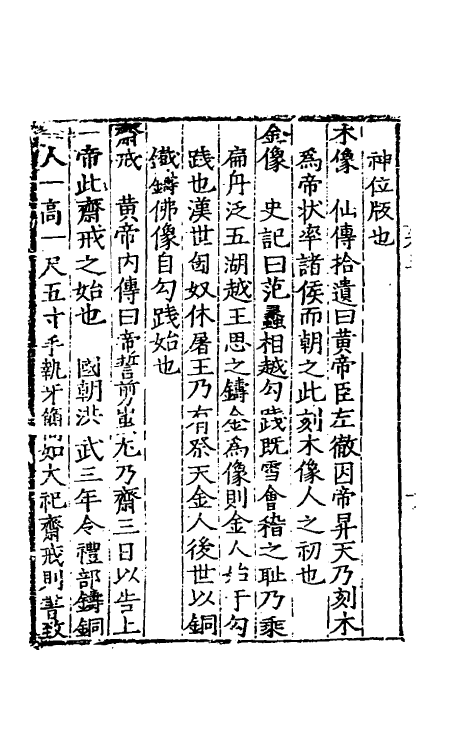 神位版也
木像　仙傳拾遺曰黄帝臣左徹因帝昇天乃刻木
爲帝状率諸侯而朝之此刻木像人之初也
金像　史記曰范蠡相越勾踐既雪會稽之耻乃乘
扁舟泛五湖越王思之鑄金爲像則金人始于勾
踐也漢世匈奴休屠王乃有祭天金人後世以銅
鐵鑄佛像自勾踐始也
齋戒　黄帝内傳曰帝誓剪蚩尤乃齋三日以告上
帝此齋戒之始也　國朝洪武三年令禮部鑄銅
人一高一尺五寸手執牙簡如大祀齋戒則著致